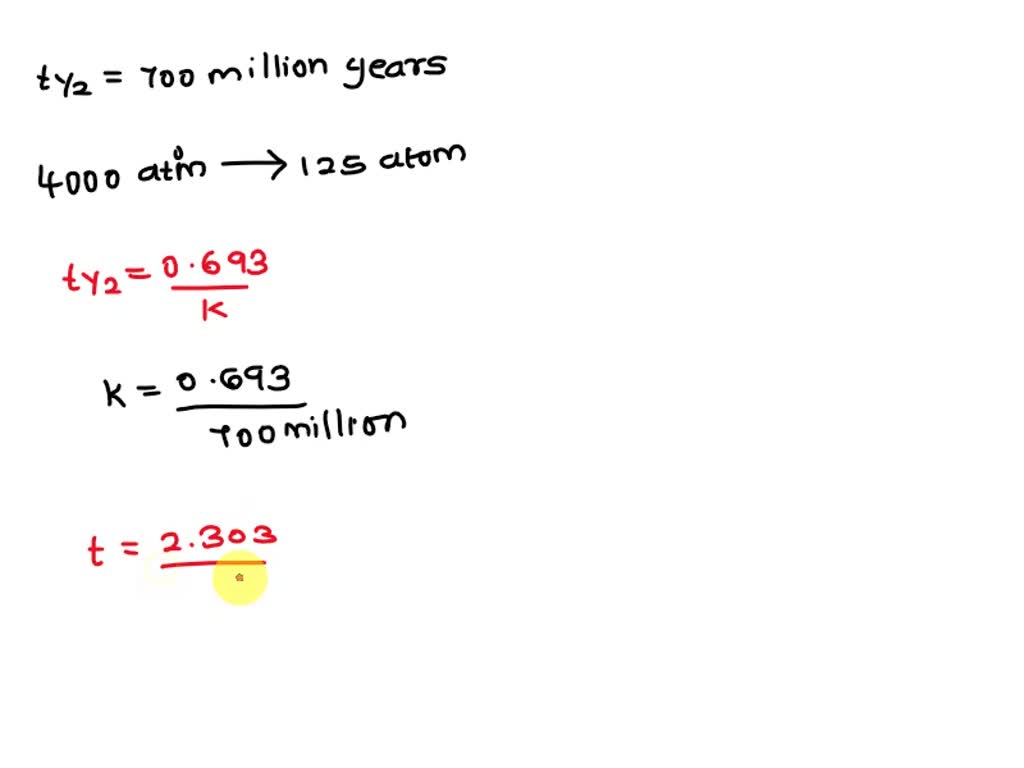 t1/2 = 700 million years
4000 atom → 125 atom
t1/2 = 0.693 / K
K = 0.693 / 700 million
t = 2.303